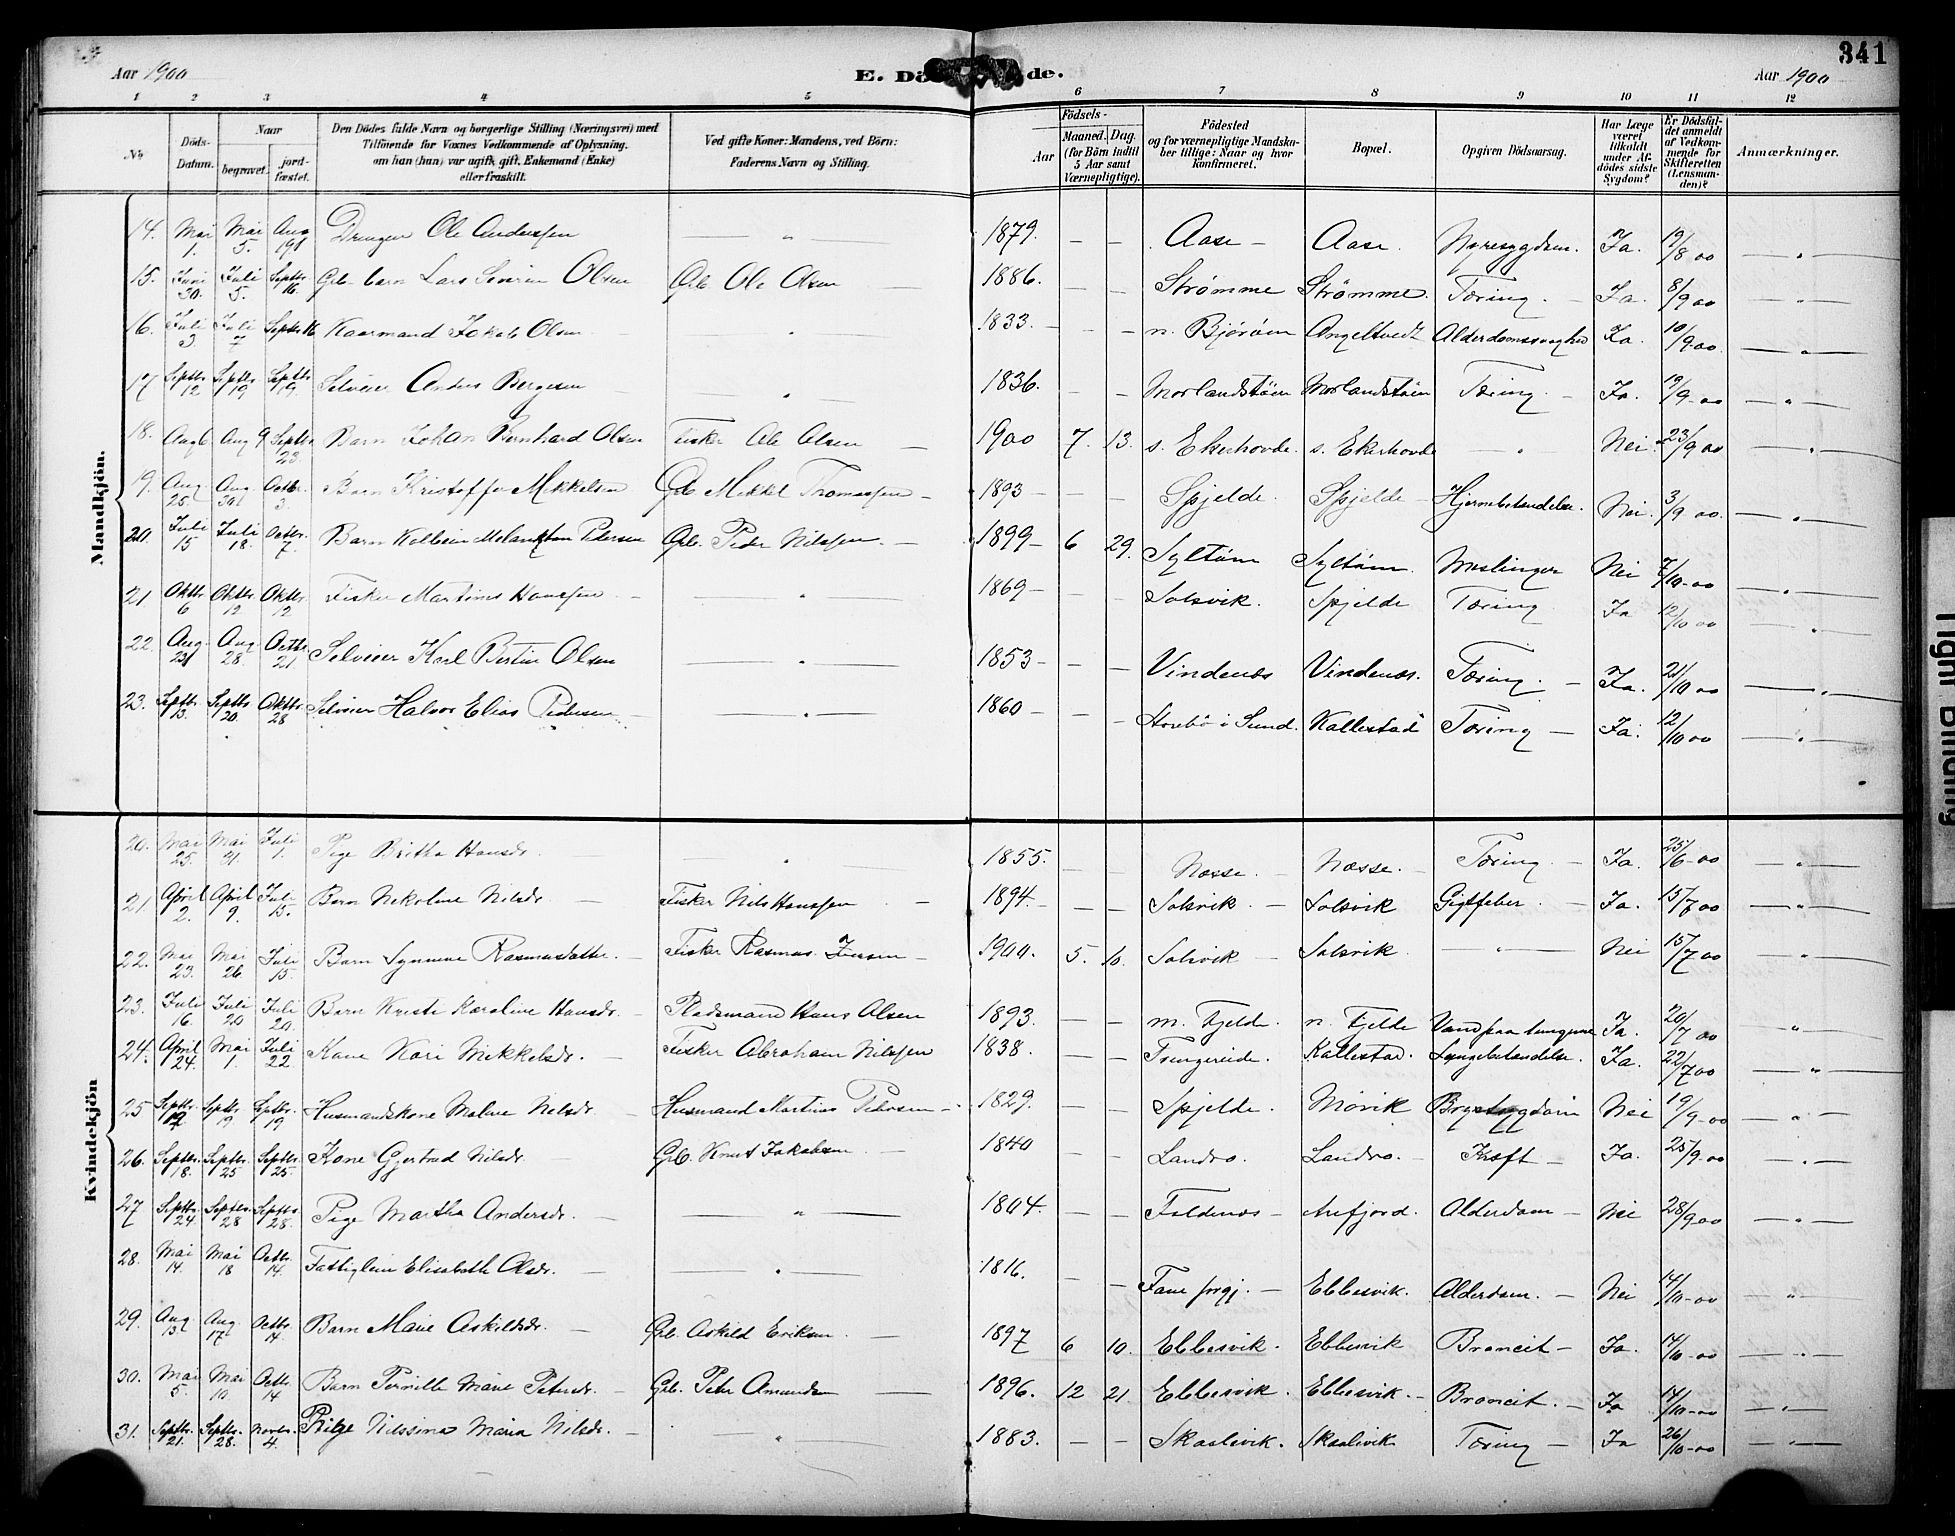 341
Aar 1900
E. Dö de.
Aar 1900
1 2 3 4 5 6 7 8 9 10 11 12
No
Döds-Datum.
Naar
begravet.
jord-fæstet.
Den Dödes fulde Navn og borgerlige Stilling (Næringsvei) med
Tilföiende for Voxnes Vedkommende af Oplysning.
om han (hun) var ugift, gift, Enkemand (Enke)
eller fraskilt.
Ved gifte Koner: Mandens, ved Börn:
Faderens Navn og Stilling.
Födsels-
Aar
Maaned. Dag.
(for Börn indtil
5 Aar samt
Værnepligtige).
Födested
og for værnepligtige Mandska-
ber tillige: Naar og hvor
konfirmeret.
Bopæl.
Opgiven Dödsaarsag.
Har Læge
været
tilkaldt
under Af-
dödes sidste
Sygdom?
Er Dödsfal-
det anmeldt
af Vedkom-
mende for
Skifteretten
(Lensman-
den)?
Anmærkninger.
Mandkjön.
14. Mai 1. Mai 5. Aug 19 Drengen Ole Anderssen — " — 1879. — — Aase — Aase. Nyresygdom. Ja. 19/8 00 — " —
15. Juni 30. Juli 5. Septbr 16. Gb. barn Lars Severin Olsen Gb. Ole Olsen — 1886. — — Strømme Strømme. Tæring. — Ja. 8/9 00 — " —
16. Juli 3. Juli 7 Septbr 16 Kaarmand Jakob Olsen — " — 1833. — — n. Bjørøen Angeltvedt Alderdomssvaghed Ja. 10/9 00. — " —
17 Septbr 12 Septbr 19 Septbr 19. Selveier Anders Bergesen — " — 1836. — — Morlandstøen Morlandstøen Tæring. — Ja. 19/9-00 — " —
18. Aug 6 Aug 9 Septbr 23. Barn Johan Bernhard Olsen Fisker Ole Olsen — 1900 7. 13. s. Ekerhovde. s. Ekerhovde — " Nei. 23/9 00 — " —
19. Aug 25. Aug 30 Octbr 3. Barn Kristoffer Mikkelsen Gb. Mikkel Thomassen — 1893 — — — Spjelde. Spjelde — Hjernebetændelse. Nei. 3/9 00. — " —
20. Juli 15 Juli 18. Octbr. 7. Barn Kolbein Melankton Pedersen Gb. Peder Nilssen. — 1899 — 6 29. Syltøen Syltøen. Meslinger Nei 7/10-00 — " —
21 Oktbr 6 Oktbr 12 Oktbr 12 Fisker Martinus Hanssen — " — 1869 — — — Solsvik. Spjelde Tæring Ja 12/10 00 — " —
22. Aug 23 Aug 28. Octbr. 21 Selveier Karl Bertin Olsen — " — 1853 — — — Vindenæs Vindenæs. Tæring. — Ja. 21/10 00 — " —
23. Septbr. 13. Septbr 20. Oktbr. 28 Selveier Halvor Elias Pedersen — " — 1860 — — — Storebø i Sund. Kallestad Tæring — Ja. 12/10 00 — " —
Kvindekjön
20. Mai 25. Mai 31. Juli 1. Pige Britha Hansdr. — " — 1855. — — Næsse. — Næsse. — Tæring. — Ja. 25/6-00 — " —
21. April 2. April 9. Juli 15. Barn Nikoline Nilsdr. — Fisker Nils Hanssen — 1894. — — Solsvik. — Solsvik Gigtfeber — Ja. 15/7 00 — " —
22. Mai 23. Mai 26 Juli 15. Barn Synneve Rasmusdatter. — Fisker Rasmus Iversen — 1900. 5. 10. Solsvik — Solsvik — " — Nei 15/7 00 — " —
23. Juli 16. Juli 20 Juli 20. Barn Kristi Karoline Hansdr. — Pladsmand Hans Olsen 1893. — — m. Fjelde. n. Fjelde Vand paa lungerne Ja. 20/7 00 "
24. April 24. Mai 1. Juli 22 Kone Kari Mikkelsdr. — Fisker Abraham Nilssen 1838. — — Trengereide. Kallestad. Lungebetændelse. Ja. 22/7 00 — " —
25 Septbr. Septbr 19 Septbr. 19 Husmandskone Malene Nilsdr. — Husmand Martinus Pedersen — 1829. — — Spjelde. Mørvik Brystsygdom Nei 19/9-00 — " —
26. Septbr. 18. Septbr. 25 Septbr. 25. Kone Gjertrud Nilsdr. — Gb. Knut Jakobsen — 1840 — — Landro. Landro. — Kræft — Ja. 25/9-00 — " —
27 Septbr. 24. Septbr. 28 Septbr. 28. Pige Martha Andersdr. — — " — 1804. — — Foldenæs — Arefjord. Alderdom — Nei 28/9 00 — " —
28. Mai 14. Mai 18 Octbr. 14. Fattiglem Elisabeth Olsdr. — — " — 1816. — — Fane prgj. — Ebbesvik. Alderdom. — Nei 14/10-00 "
29. Aug 13. Aug. 17 Octbr. 14. Barn Marie Askildsdr. — Gb. Askild Eriksen. — 1897 6 10. Ebbesvik. Ebbesvik Broncit — Ja. 14/10-00 — " —
30. Mai 5. Mai 10 Octbr. 14 Barn Pernille Marie Petersdr. — Gb. Peter Amundsen — 1896. 12 21. Ebbesvik. Ebbesvik. — Broncit. — Ja 14/10-00 — " —
31. Septbr. 21. Septbr. 28. Novbr. 4. Pige Nilssina Maria Nilsdr. — — " — 1883. — — Skaalvik. Skaalvik Tæring — Ja 26/10-00 — " —